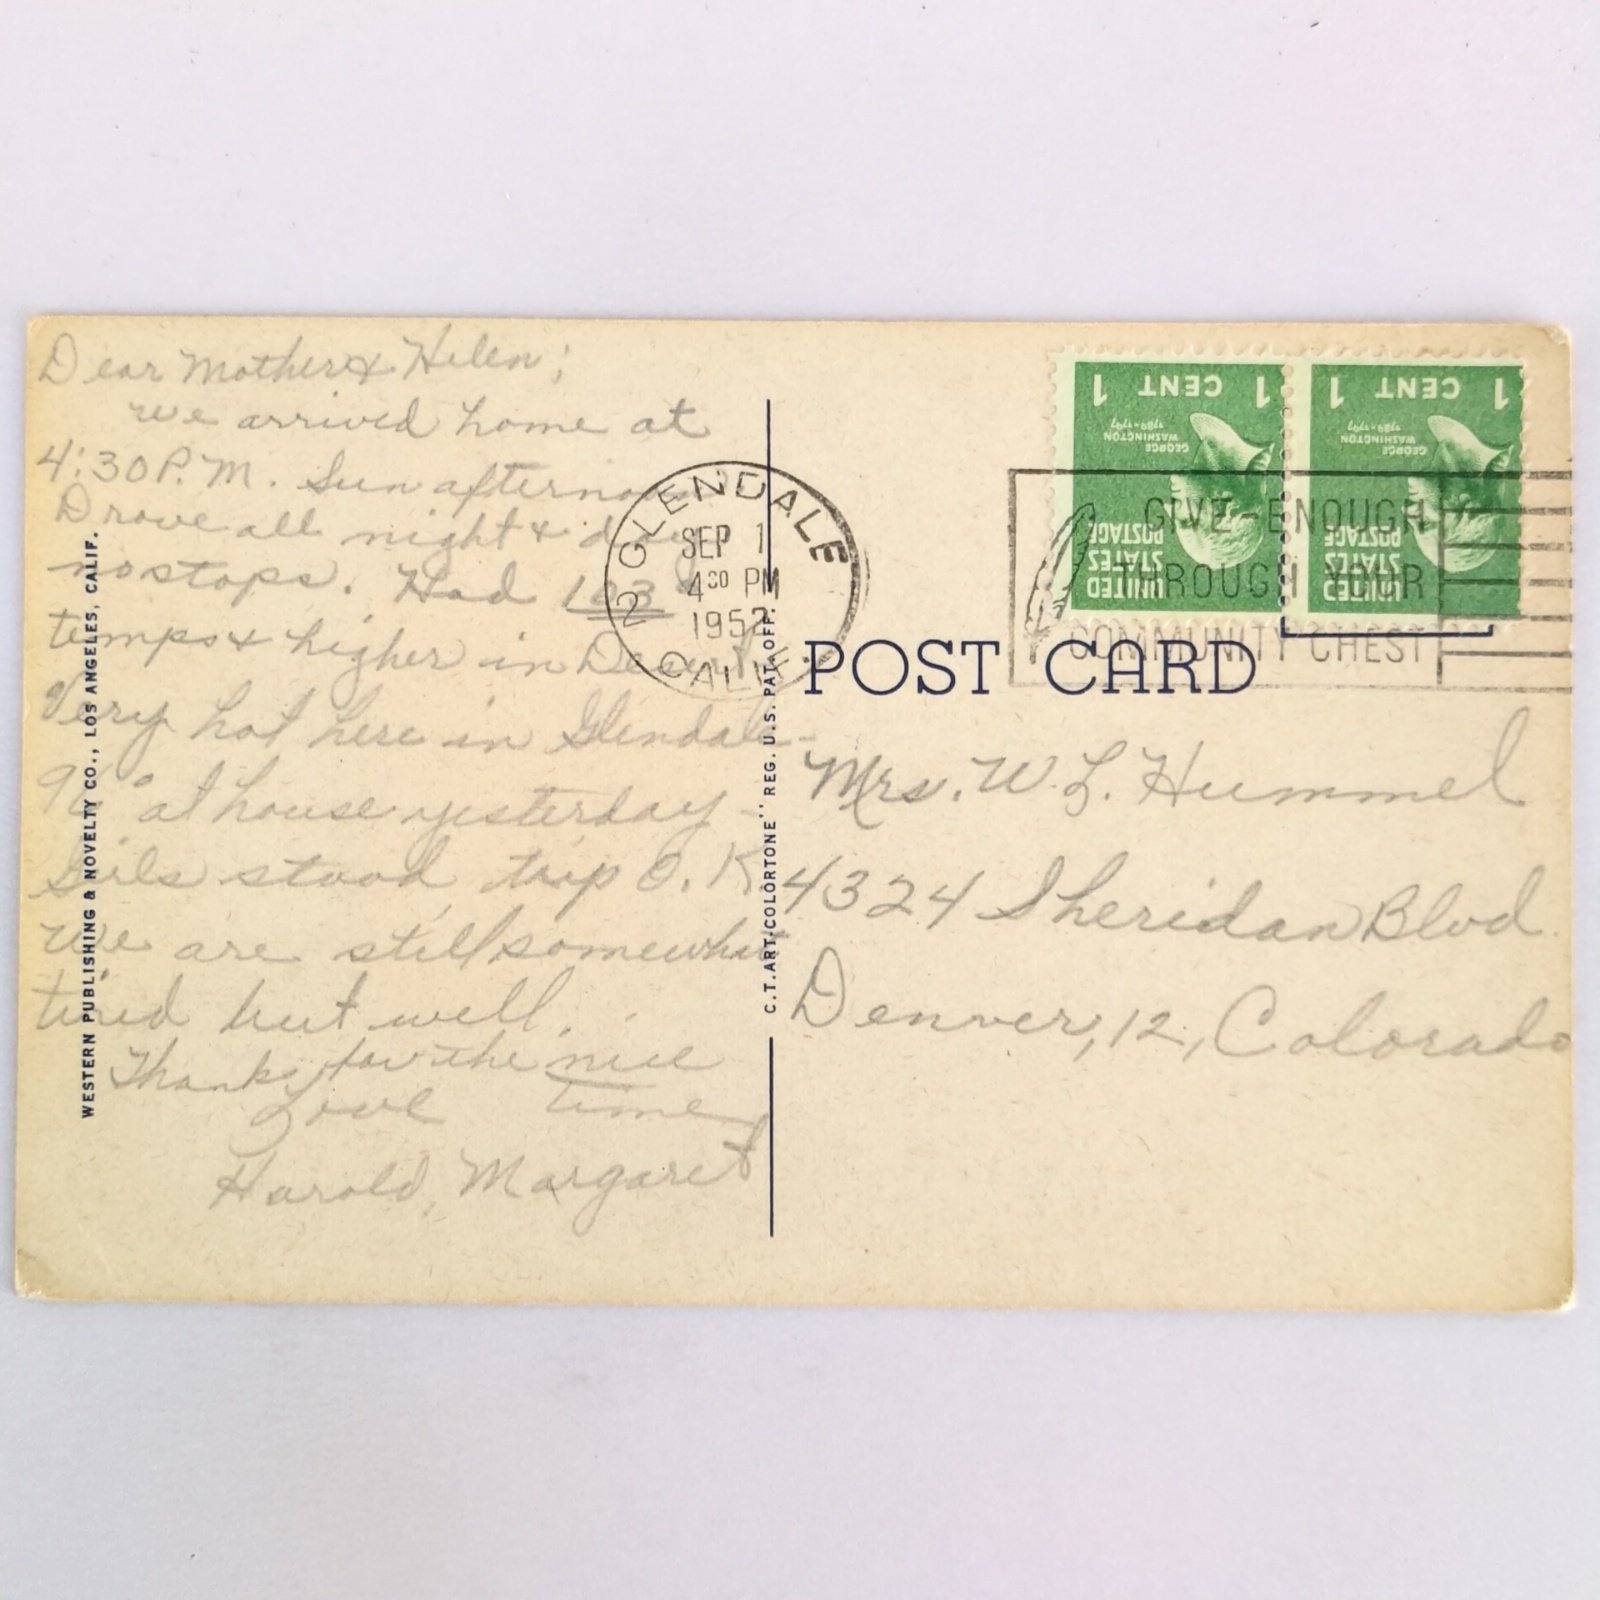 Dear Mother & Helen;
We arrived home at
4:30 P.M. Sun afternoon
Drove all night & day
no stops. Had 103°
temps & higher in Desert
Very hot here in Glendale-
at house yesterday -
Girls stood trip O.K.
We are still somewhat
tired but well.
Thanks for the nice
time
Love
Harold, Margaret
WESTERN PUBLISHING & NOVELTY CO., LOS ANGELES, CALIF.
C.T. ART-COLORTONE" REG. U.S. PAT. OFF.
GLENDALE
2
SEP 1
4 30 PM
1952
CALIF.
GIVE-ENOUGH
THROUGH YOUR
COMMUNITY CHEST
UNITED
STATES
POSTAGE
GEORGE
WASHINGTON
1789-1797
1 CENT 1
UNITED
STATES
POSTAGE
GEORGE
WASHINGTON
1789-1797
1 CENT 1
POST CARD
Mrs. W. L. Hummel
4324 Sheridan Blvd.
Denver, 12, Colorado